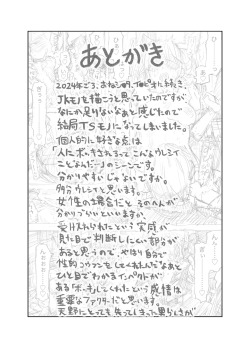 あとがき
2024年ごろ、おねショタ、
に続き、
JKモノを描こうと思っていたのですが
なにか足りないなぁと感じたので
結局TSモノになってしまいました。
個人的に好きな点は
「人にボッキされるってこんなウレシイ
ことよんだ…」のシーンです。
分かりやすいじゃないですか。
多分ウレシイと思います。
女性の場合だと そのへんが
分かりづらいといいますか、
受け入れられたという実感が
見た目で判断しにくい部分が
あると思うので、やはり自分で
性的コウフンをしてくれたんだなぁと
ひと目でわかるインパクトが
ある「ボッキしてくれた」という感情は
重要なファクターだと思います。
天野にとっても失ってしまった男らしさが